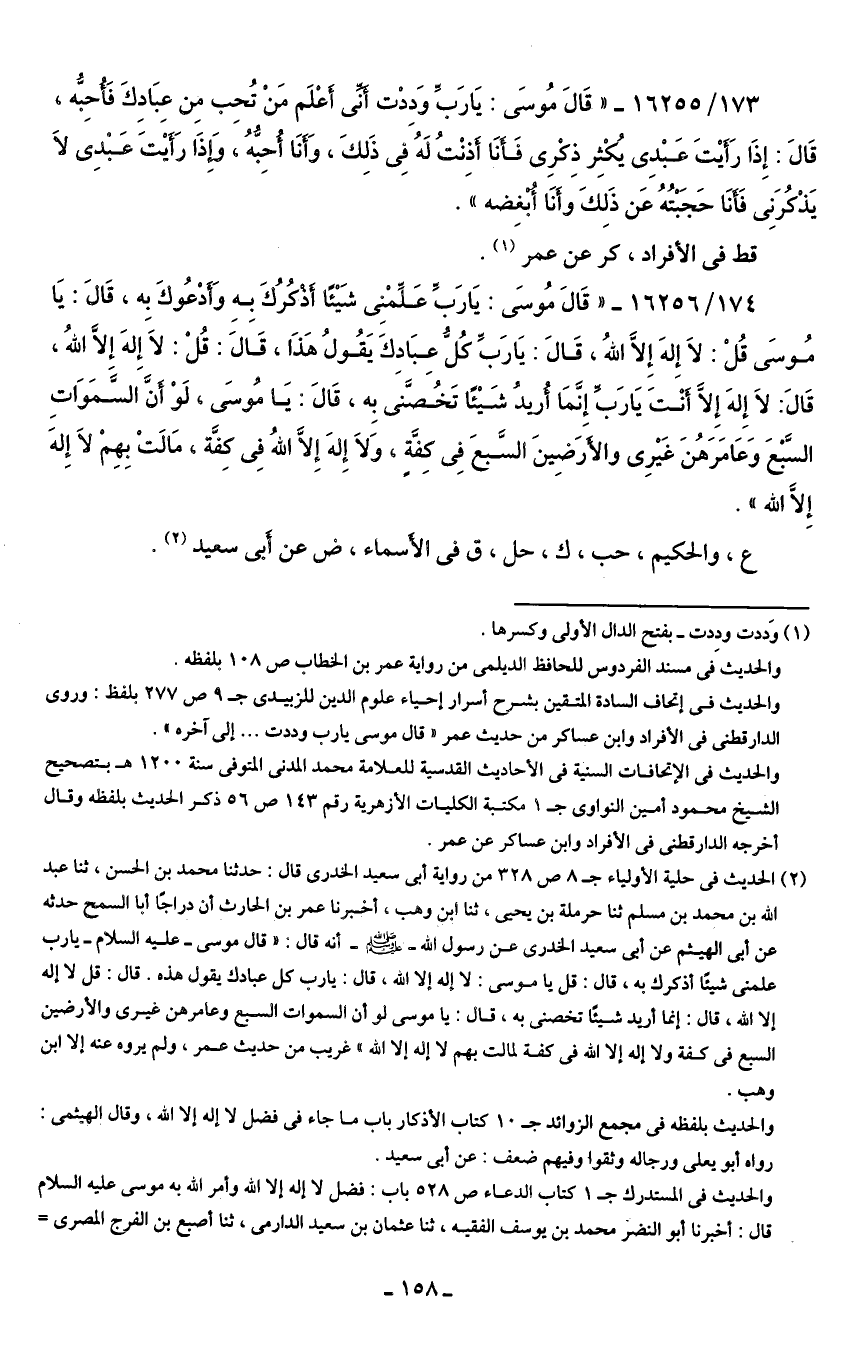 ١٧٣/ ١٦٢٥٥ ـ « قَالَ مُوسَى : يَارَبِّ وَدِدْت أَنِّى أَعْلَم مَنْ تُحب مِن عِبَادكَ فَأُحبُّه ،
قَالَ : إِذَا رَأَيْتَ عَبْدِى يُكْثر ذكْرِى فَأَنَا أَذنْتُ لَهُ فِى ذَلكَ ، وَأَنَا أُحبُّهُ ، وَإِذَا رَأَيْتَ عَبْدِى لاَ
يَذْكُرَنِى فَأَنَا حَجَبْتُهُ عَن ذَلكَ وأَنَا أُبْغضه » .
قط فى الأفراد ، كر عن عمر (١) .
١٧٤/ ١٦٢٥٦ ـ « قَالَ مُوسَى : يَارَبِّ عَلِّمْنِى شَيْئًا أَذْكُرُكَ بِهِ وَأَدْعُوكَ بِه ، قَالَ : يَا
مُوسَى قُلْ : لاَ إِلهَ إِلاَّ اللهُ ، قَالَ : يَارَبِّ كُلُّ عِبَادكَ يَقُولُ هَذَا ، قَالَ : قُلْ : لاَ إِلهَ إِلاَّ اللهُ ،
قَالَ: لاَ إِلهَ إِلاَّ أَنْتَ يَارَبِّ إِنَّمَا أُرِيدُ شَيْئًا تَخُصَّنِى بِه ، قَالَ : يَا مُوسَى ، لَوْ أَنَّ السَّمَوَات
السَّبْعَ وَعَامَرَهُنَ غَيْرِى والأَرَضِينَ السَّبعَ فِى كِفَّةٍ ، ولاَ إِلهَ إِلاَّ اللهُ فِى كفَّة ، مَالَتْ بِهِمْ لاَ إِلهَ
إِلاَّ الله » .
ع ، والحكيم ، حب ، ك ، حل ، ق فى الأسماء ، ض عن أبى سعيد (٢) .
(١) وَددت وددِت ـ بفتح الدال الأولى وكسرها .
والحديث فى مسند الفردوس للحافظ الديلمى من رواية عمر بن الخطاب ص ١٠٨ بلفظه .
والحديث فى إتحاف السادة المتقين بشرح أسرار إحياء علوم الدين للزبيدى جـ ٩ ص ٢٧٧ بلفظ : وروى
الدارقطنى فى الأفراد وابن عساكر من حديث عمر « قال موسى يارب وددت ... إلى آخره » .
والحديث فى الإتحافات السنية فى الأحاديث القدسية للعلامة محمد المدنى المتوفى سنة ١٢٠٠ هـ بتصحيح
الشيخ محمود أمين النواوى جـ ١ مكتبة الكليات الأزهرية رقم ١٤٣ ص ٥٦ ذكر الحديث بلفظه وقال
أخرجه الدارقطنى فى الأفراد وابن عساكر عن عمر .
(٢) الحديث فى حلية الأولياء جـ ٨ ص ٣٢٨ من رواية أبى سعيد الخدرى قال : حدثنا محمد بن الحسن ، ثنا عبد
الله بن محمد بن مسلم ثنا حرملة بن يحيى ، ثنا ابن وهب ، أخبرنا عمر بن الحارث أن دراجًا أبا السمح حدثه
عن أبى الهيثم عن أبى سعيد الخدرى عن رسول الله ـ ﷺ ـ أنه قال : « قال موسى ـ عليه السلام ـ يارب
علمنى شيئًا أذكرك به ، قال : قل يا موسى : لا إله إلا الله ، قال : يارب كل عبادك يقول هذه . قال : قل لا إله
إلا الله ، قال : إنما أريد شيئًا تخصنى به ، قال : يا موسى لو أن السموات السبع وعامرهن غيرى والأرضين
السبع فى كفة ولا إله إلا الله فى كفة لمالت بهم لا إله إلا الله » غريب من حديث عمر ، ولم يروه عنه إلا ابن
وهب .
والحديث بلفظه فى مجمع الزوائد جـ ١٠ كتاب الأذكار باب ما جاء فى فضل لا إله إلا الله ، وقال الهيثمى :
رواه أبو يعلى ورجاله وثقوا وفيهم ضعف : عن أبى سعيد .
والحديث فى المستدرك جـ ١ كتاب الدعاء ص ٥٢٨ باب : فضل لا إله إلا الله وأمر الله به موسى عليه السلام
قال : أخبرنا أبو النضر محمد بن يوسف الفقيه ، ثنا عثمان بن سعيد الدارمى ، ثنا أصبع بن الفرج المصرى =
ـ ١٥٨ ـ